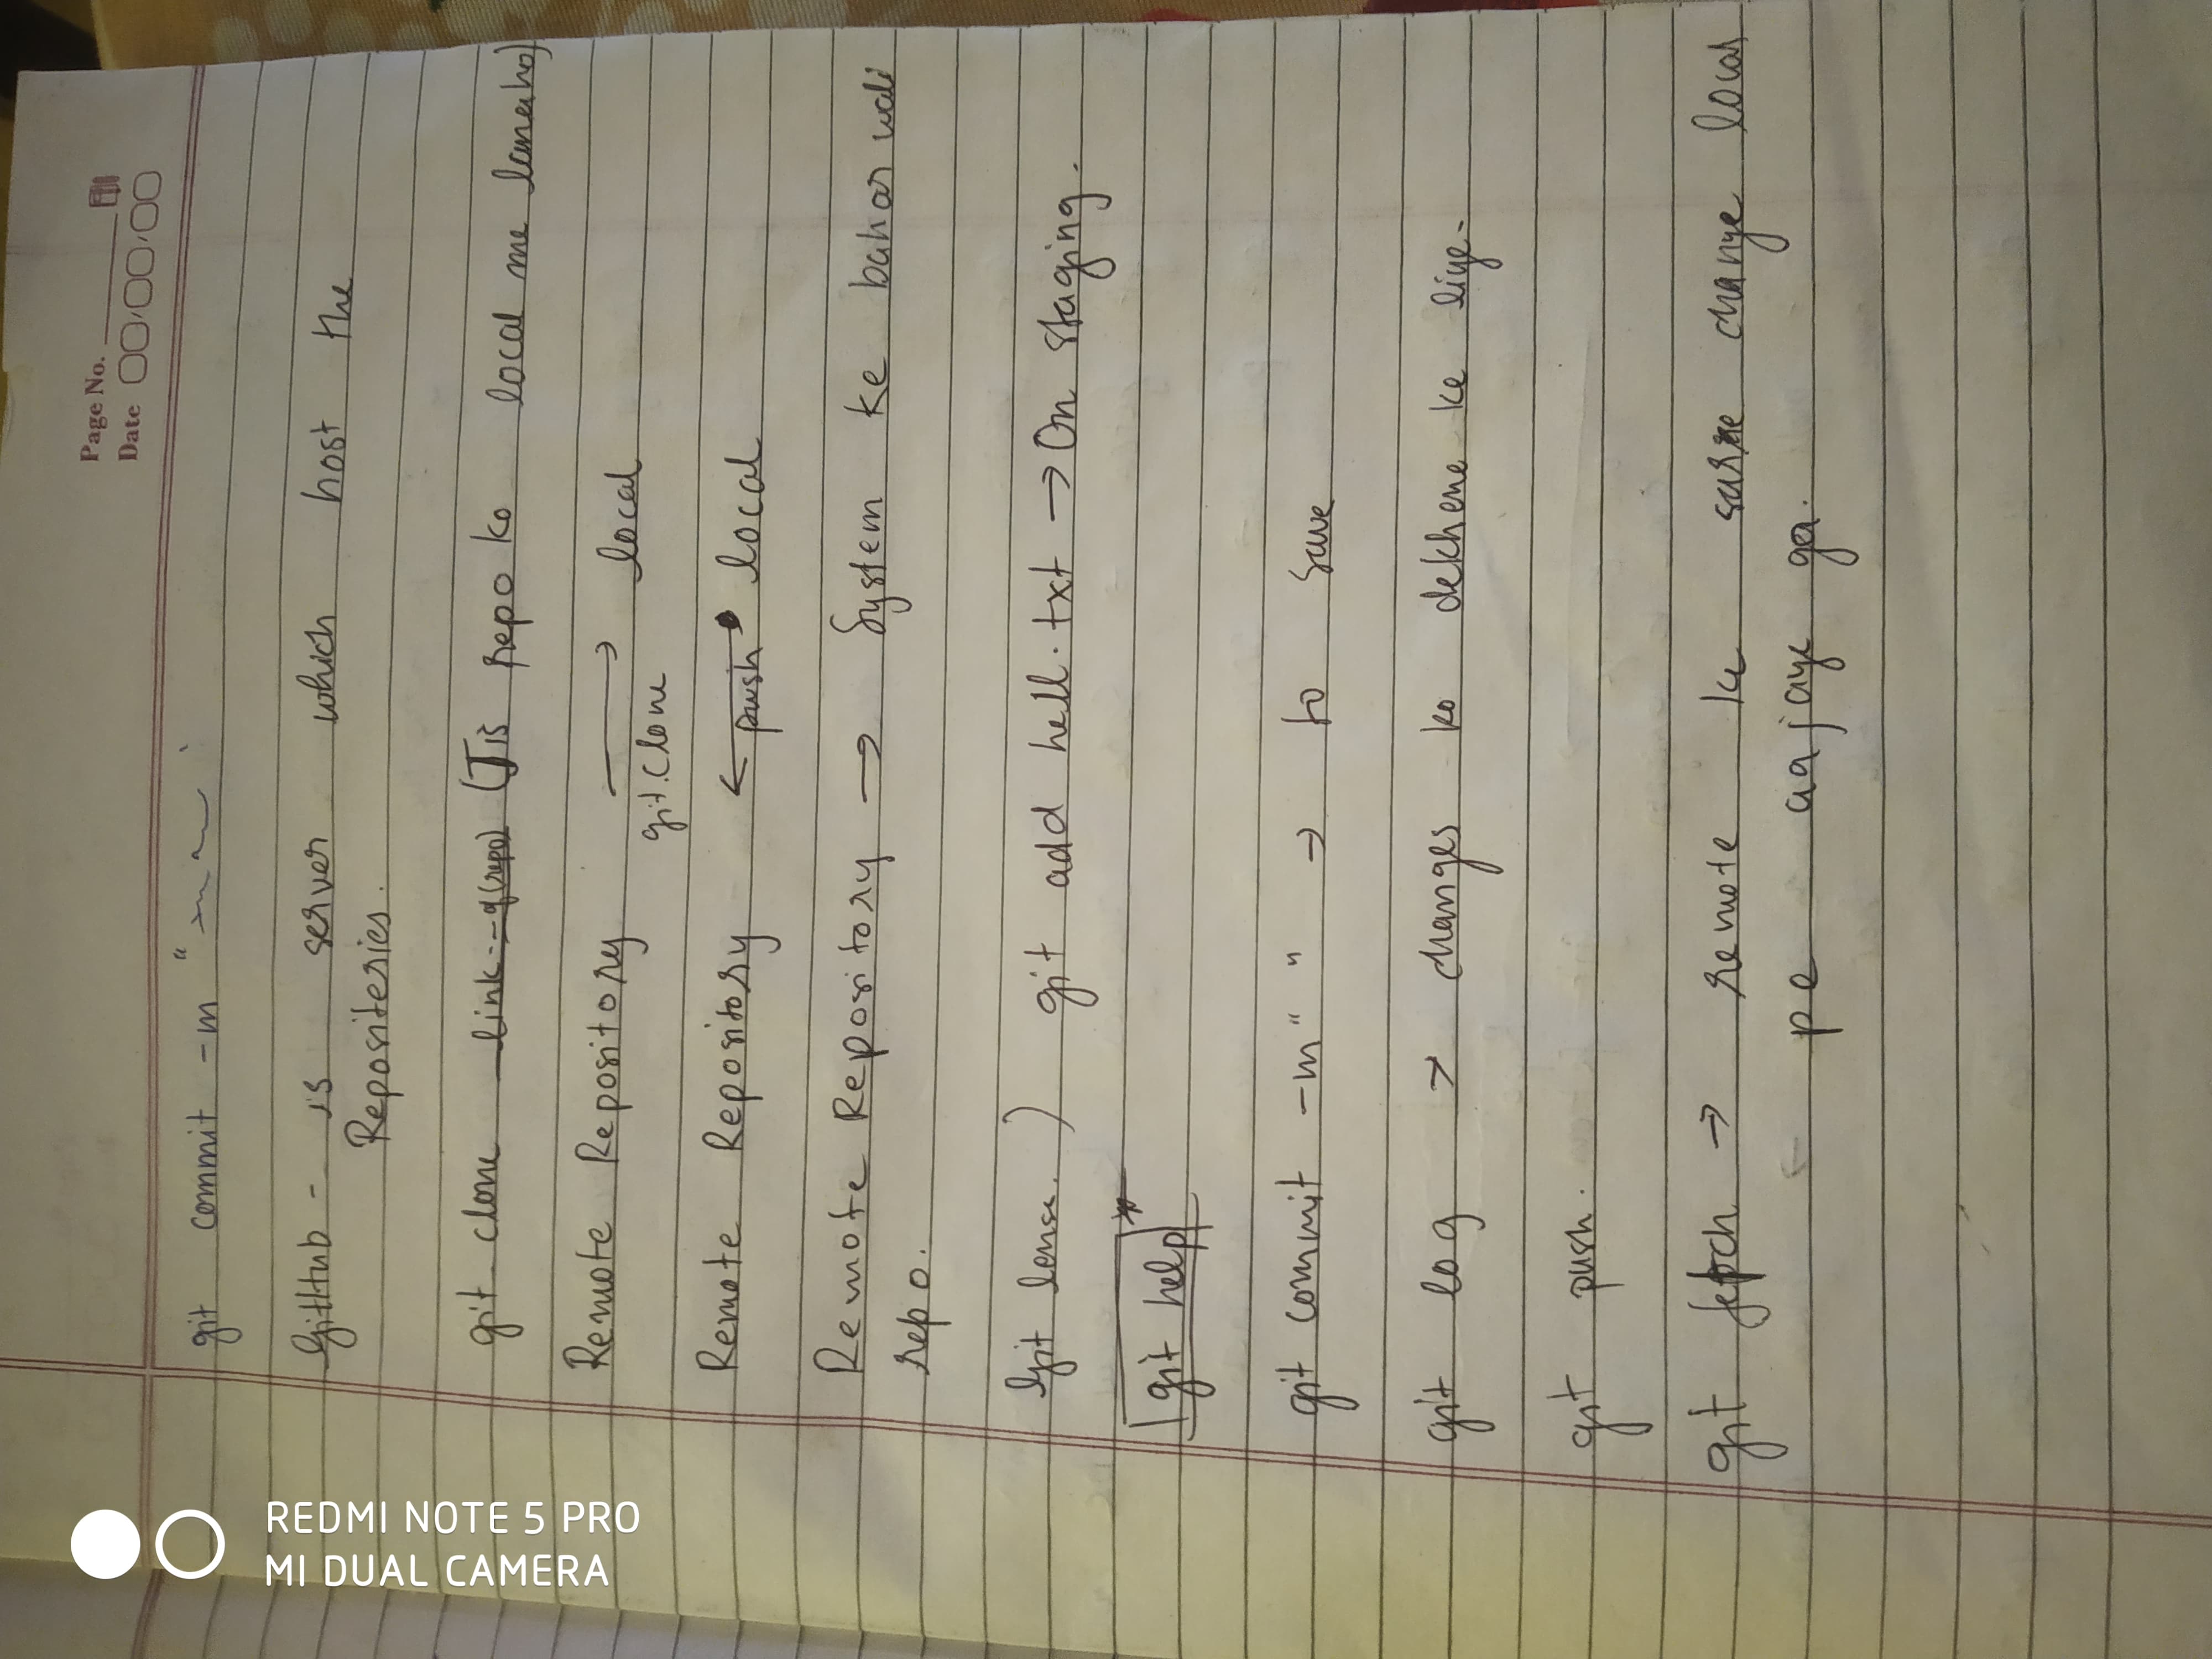 Page No.
Date
git commit -m "
GitHub - is server which host the
Repositeries.
git clone link - (repo) (Jis repo ko local me lana ho)
Remote Repository → local
git. Clone
Remote Repository ← push local
Remote Repository → System ke bahar wali
repo.
Git lense. ) git add hell.txt → On staging.
git help
git commit -m " " → to save
git log → changes ko dekhene ke liye-
git push.
git fetch → remote ke sarre change local
pe aajaye ga.
REDMI NOTE 5 PRO
MI DUAL CAMERA